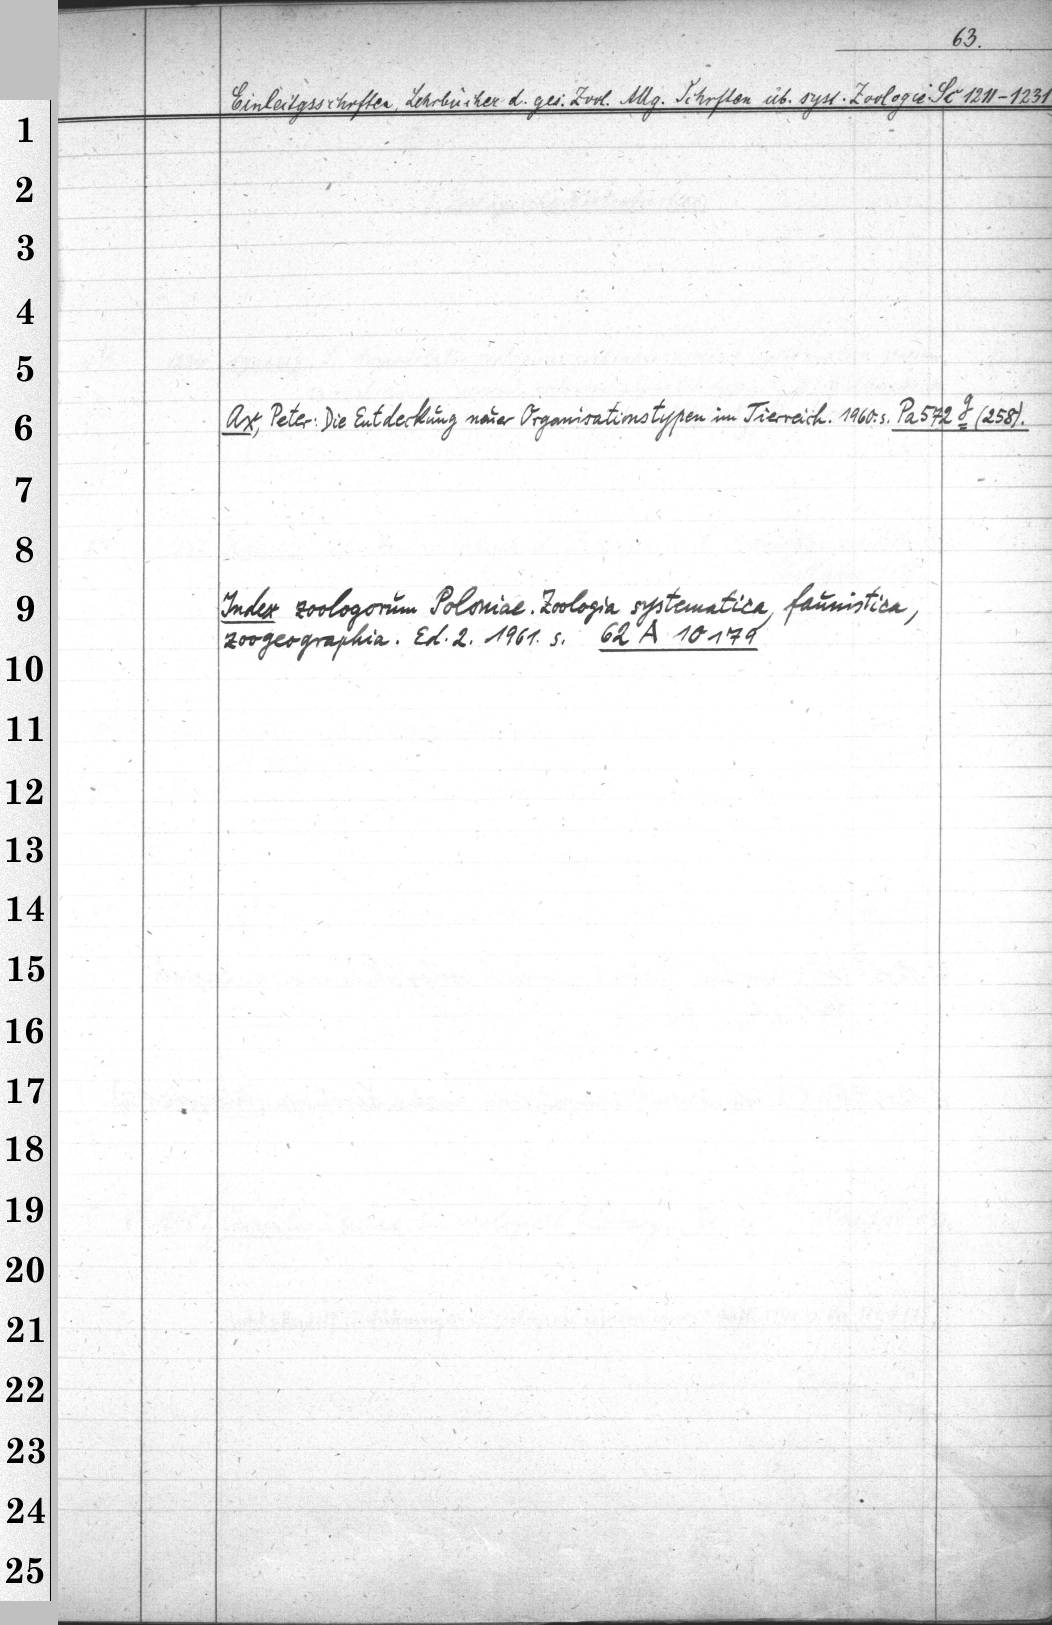 63.
Einleitgsschriften, Lehrbücher d. ges. Zool. Allg. Schriften üb. syst. Zoologie Sc 1211-1231
1
2
3
4
5
6
Ax, Peter: Die Entdeckung neuer Organisationstypen im Tierreich. 1960. s. Pa 572 g (258).
7
8
9
Index zoologorum Poloniae. Zoologia systematica, faunistica,
zoogeographia. Ed. 2. 1961. s. 62 A 10179
10
11
12
13
14
15
16
17
18
19
20
21
22
23
24
25